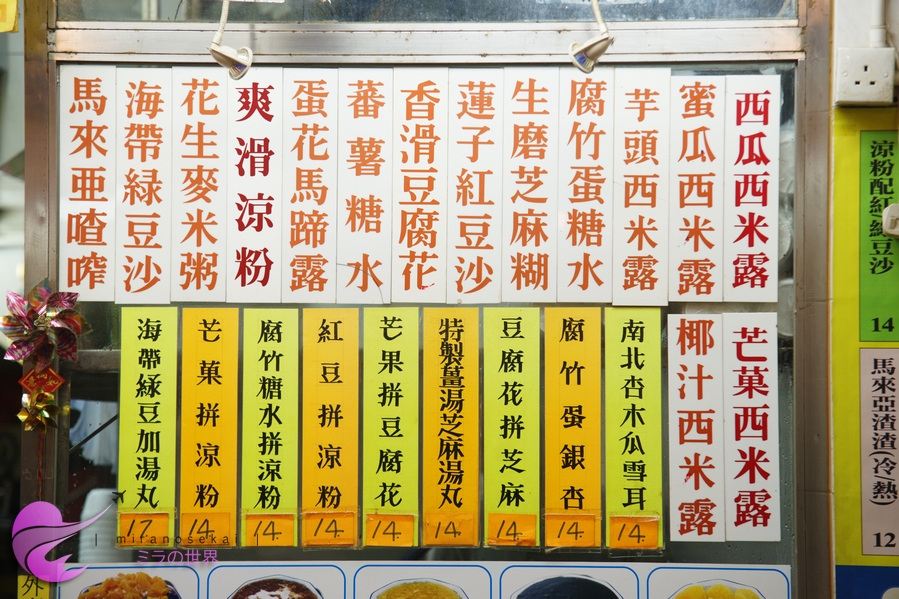 西瓜西米露
蜜瓜西米露
芋頭西米露
腐竹蛋糖水
生磨芝麻糊
蓮子紅豆沙
香滑豆腐花
蕃薯糖水
蛋花馬蹄露
爽滑涼粉
花生麥米粥
海帶緑豆沙
馬來亜喳嗱
芒菓西米露
椰汁西米露
南北杏木瓜雪耳
14
腐竹蛋銀杏
14
豆腐花拼芝麻
14
特製薑湯芝麻湯丸
14
芒果拼豆腐花
14
紅豆拼涼粉
14
腐竹糖水拼涼粉
14
芒菓拼涼粉
14
海帶緑豆加湯丸
17
涼粉配紅/綠豆沙
14
馬來亞渣渣(冷熱)
12
| mifanoseka |
ミラの世界
外